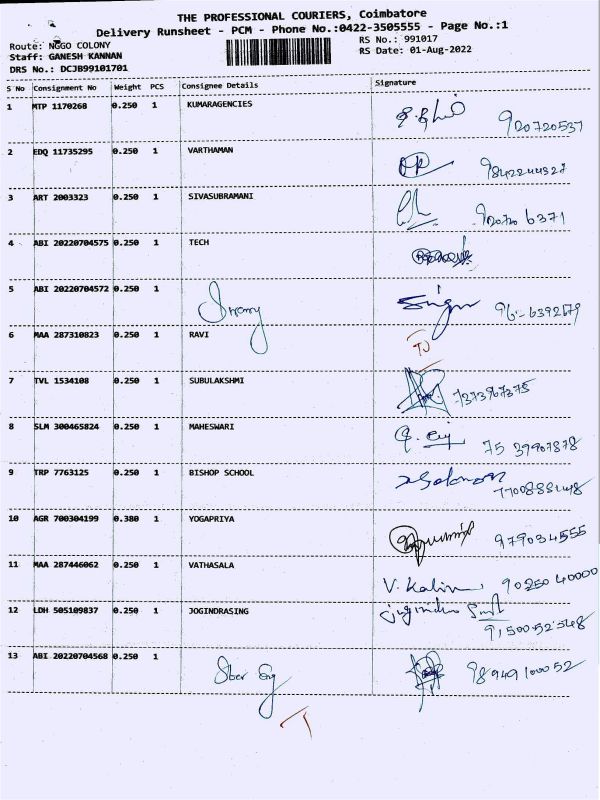 THE PROFESSIONAL COURIERS, Coimbatore
Delivery Runsheet - PCM - Phone No.:0422-3505555 - Page No.:1
Route: NGGO COLONY
RS No.: 991017
Staff: GANESH KANNAN
RS Date: 01-Aug-2022
DRS No.: DCJB99101701
S No Consignment No Weight PCS Consignee Details Signature
1 MTP 1170268 0.250 1 KUMARAGENCIES
920720537
2 EDQ 11735295 0.250 1 VARTHAMAN
9842244327
3 ART 2003323 0.250 1 SIVASUBRAMANI
4 ABI 20220704575 0.250 1 TECH
5 ABI 20220704572 0.250 1
6 MAA 287310823 0.250 1 RAVI
7 TVL 1534108 0.250 1 SUBULAKSHMI
7373967375
8 SLM 300465824 0.250 1 MAHESWARI
75 39907878
9 TRP 7763125 0.250 1 BISHOP SCHOOL
Solomon
10 AGR 700304199 0.380 1 YOGAPRIYA
979034555
11 MAA 287446062 0.250 1 VATHASALA
90250 40000
12 LDH 505109837 0.250 1 JOGINDRASING
91500 52548
13 ABI 20220704568 0.250 1
9894910052